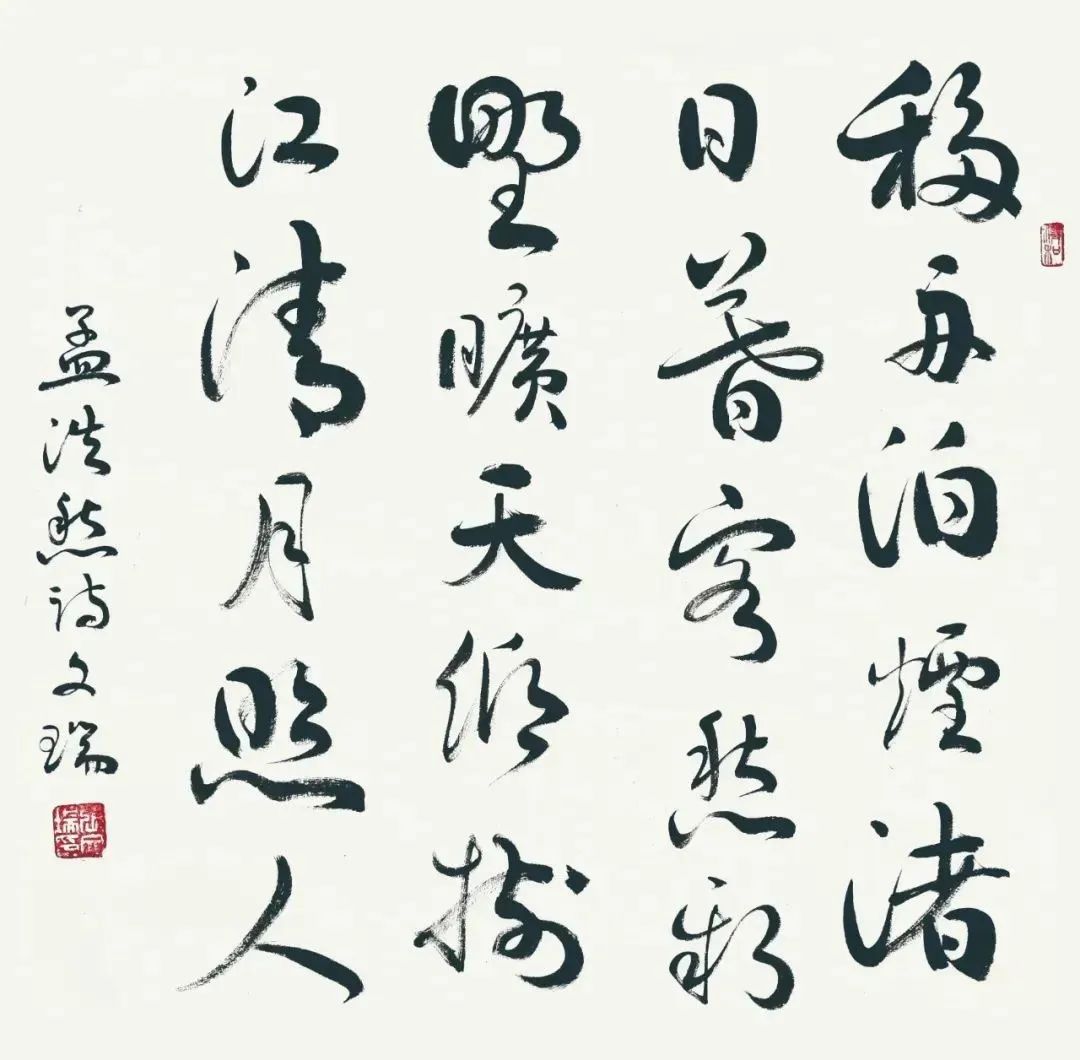 移舟泊煙渚
日暮客愁新
野曠天低樹
江清月照人
孟浩然诗文瑞